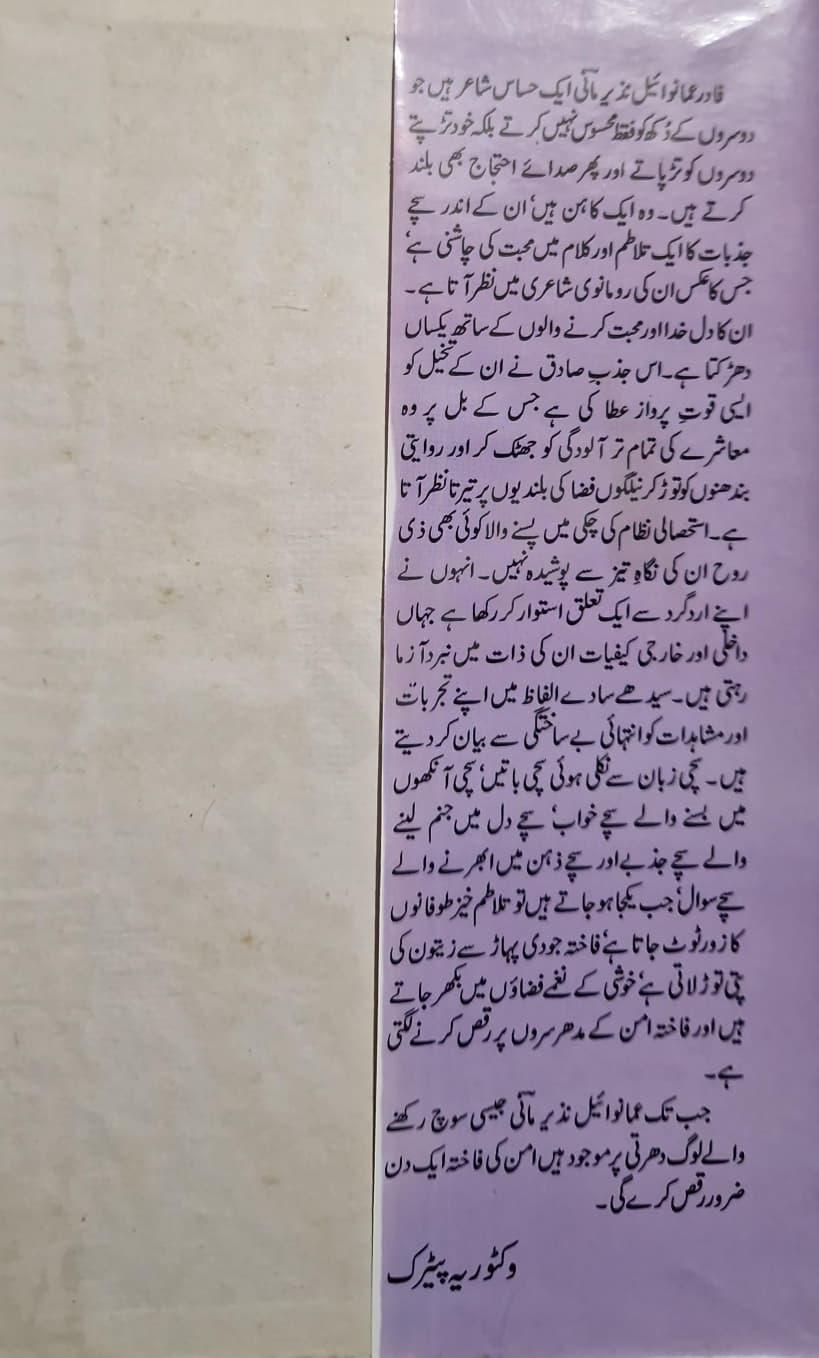 فادر عمانوائیل نذیر مانی ایک حساس شاعر ہیں جو
دوسروں کے دُکھ کو فقط محسوس نہیں کرتے بلکہ خود تڑپتے
دوسروں کو تڑپاتے اور پھر صدائے احتجاج بھی بلند
کرتے ہیں۔ وہ ایک کاہن ہیں‘ ان کے اندر سچے
جذبات کا ایک تلاطم اور کلام میں محبت کی چاشنی ہے‘
جس کا عکس ان کی رومانوی شاعری میں نظر آتا ہے۔
ان کا دل خدا اور محبت کرنے والوں کے ساتھ یکساں
دھڑکتا ہے۔ اس جذبِ صادق نے ان کے تخیل کو
ایسی قوتِ پرواز عطا کی ہے جس کے بل پر وہ
معاشرے کی تمام تر آلودگی کو جھٹک کر اور روایتی
بندھنوں کو توڑ کر نیلگوں فضا کی بلندیوں پر تیرتا نظر آتا
ہے۔ استحصالی نظام کی چکی میں پسنے والا کوئی بھی ذی
روح ان کی نگاہِ تیز سے پوشیدہ نہیں۔ انہوں نے
اپنے اردگرد سے ایک تعلق استوار کر رکھا ہے جہاں
داخلی اور خارجی کیفیات ان کی ذات میں نبرد آزما
رہتی ہیں۔ سیدھے سادے الفاظ میں اپنے تجربات
اور مشاہدات کو انتہائی بے ساختگی سے بیان کر دیتے
ہیں۔ سچی زبان سے نکلی ہوئی سچی باتیں‘ سچی آنکھوں
میں بسنے والے سچے خواب‘ سچے دل میں جنم لینے
والے سچے جذبے اور سچے ذہن میں ابھرنے والے
سچے سوال‘ جب یکجا ہو جاتے ہیں تو تلاطم خیز طوفانوں
کا زور ٹوٹ جاتا ہے‘ فاختہ جودی پہاڑ سے زیتون کی
پتی توڑ لاتی ہے‘ خوشی کے نغمے فضاؤں میں بکھر جاتے
ہیں اور فاختہ امن کے مدھر سروں پر رقص کرنے لگتی
ہے۔
جب تک عمانوائیل نذیر مانی جیسی سوچ رکھنے
والے لوگ دھرتی پر موجود ہیں امن کی فاختہ ایک دن
ضرور رقص کرے گی۔
وکٹوریہ پیٹرک